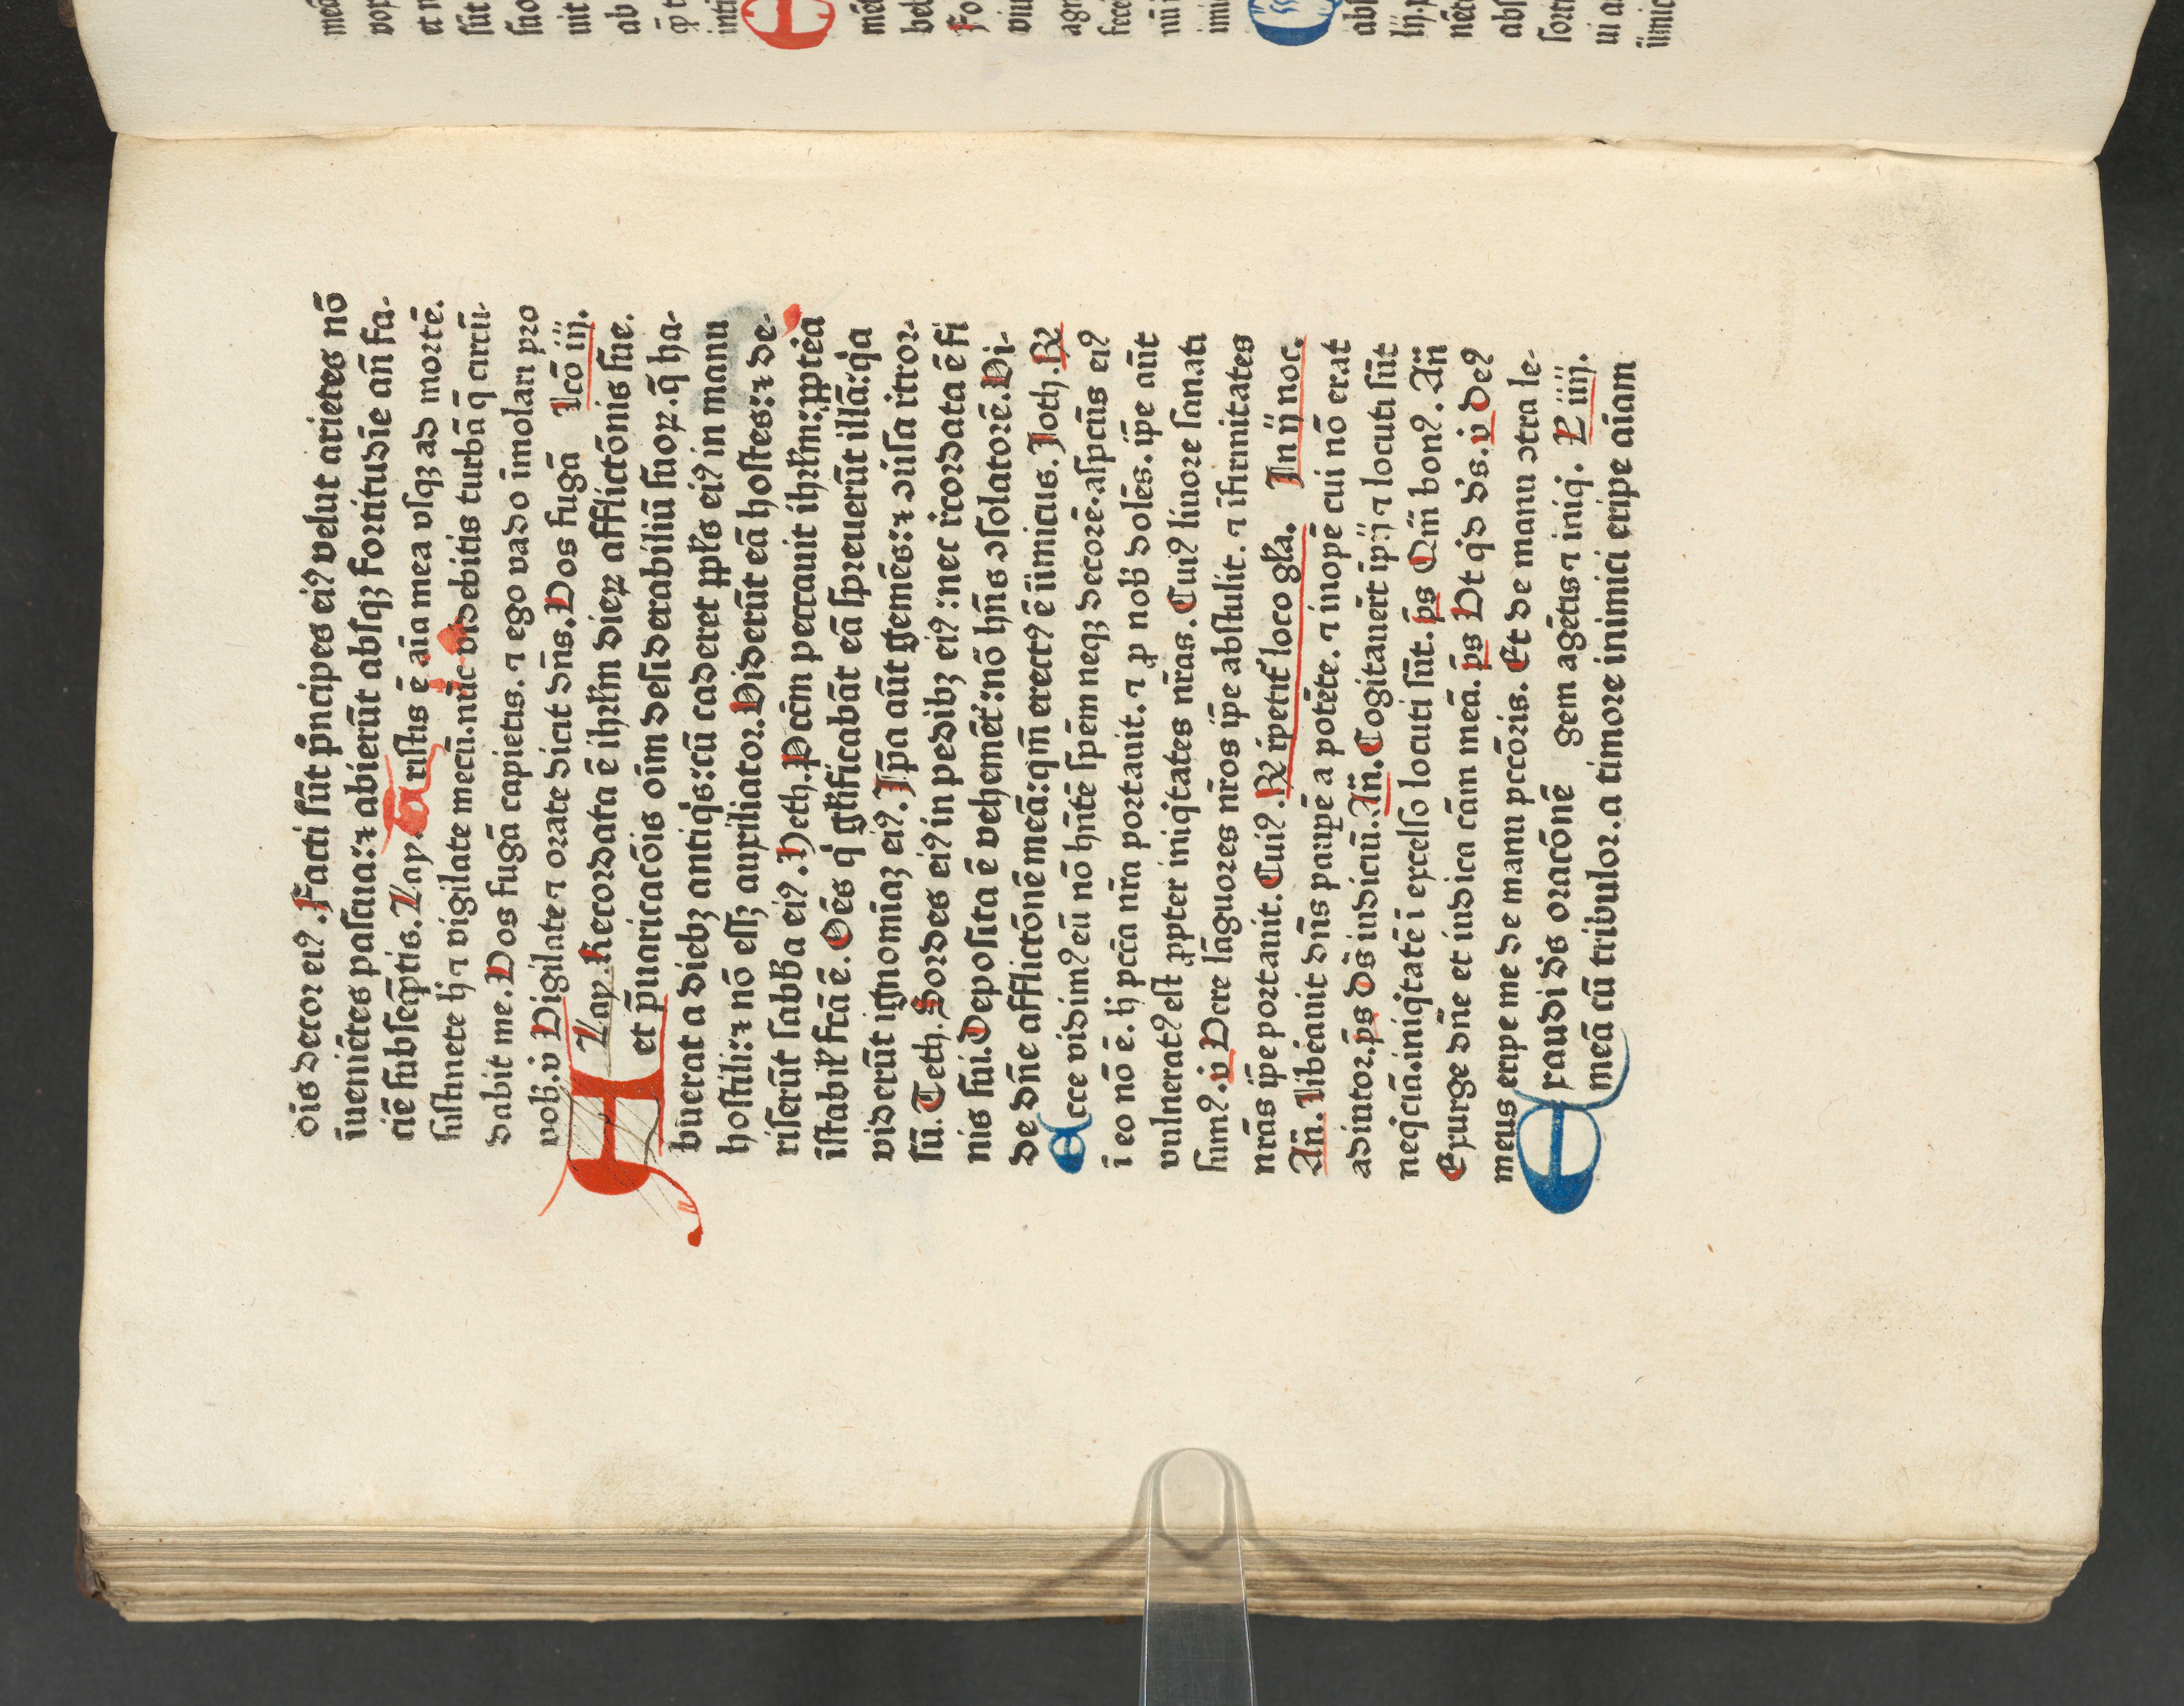 oı̄s decor eiꝰ. Facti sūt p̄ncipes eiꝰ velut arietes nō
īueniētes pascua: ⁊ abierūt absqꝫ fortitudīe an̄ fa-
ciē subseq̄ptis. Lap. a ristis ē aı̄a mea vsqꝫ ad mortē.
sustinete hͥ ⁊ vigilate mecū. nūc videbitis turbā q̄ circū-
dabit me. Vos fugā capietis. ⁊ ego vado īmolari pro
vob̄. v̄ Vigilate ⁊ orate dicit dn̄s. Vos fugā Lcō iij.
Lap. Recordata ē ihrl̄m dieꝝ afflictōnis sue.
H et p̄uaricacōis oīm desiderabiliū suoꝝ. q̄ ha-
buerat a diebꝫ antiqͥs: cū caderet ppl̄s eiꝰ in manu
hostili: ⁊ nō essꝫ auxiliator. Viderūt eā hostes: ⁊ de-
riserūt sabb̄a eiꝰ. Heth. Pcc̄m peccauit ihrl̄m: ꝓptēa
īstabil̄ fc̄a ē. Oēs qͥ gl̄ificabāt eā spreuerūt illā: qͥa
viderūt ignomīiaꝫ eiꝰ. Ip̄a aūt gemēs: ⁊ ↄūsa rͤtror-
sū. Teth. Sordes eiꝰ in pedibꝫ eiꝰ: nec rͤcordata ē fi
nis sui. Deposita ē vehemēt̄: nō hn̄s ↄsolatorē. Vi-
de dn̄e afflictōnē meā: qm̄ erectꝰ ē inimicus. Joth. R
Ecce vidimꝰ eū nō hn̄tē spēm neqꝫ decorē. aspc̄ūs eiꝰ
ī eo nō ē. hͥ pcc̄a nr̄a portauit. ⁊ ꝓ nob̄ dolēs. ip̄e aūt
vulneratꝰ est ꝓpter iniqͥtates nr̄as. Cuiꝰ liuore sanati
sumꝰ. v̄ Vere lāguores nr̄os ip̄e abstulit. ⁊ īfirmitates
nr̄as ip̄e portauit. Cuiꝰ. R rͤpetit̄ loco gl̄a. In ij noc.
An̄. Libēauit dn̄s paupē a potēte. ⁊ inopē cui nō erat
adiutor. p̄s Ds̄ iudiciū. An̄. Cogitauer̄t īpij ⁊ locuti sūt
neqͥciā. iniqͥtatē ī excelso locuti sūt. p̄s Qm̄ bonꝰ. An̄
Exurge dn̄e et iudica cām meā. p̄s Vt qͥd ds̄. v̄ Deꝰ
meus eripe me de manu pccōris. Et de manu ↄtra le-
E xaudi ds̄ oracōnē gem agētis ⁊ iniq. P iiij.
meā cū tribulor. a timore inimici eripe aı̄am